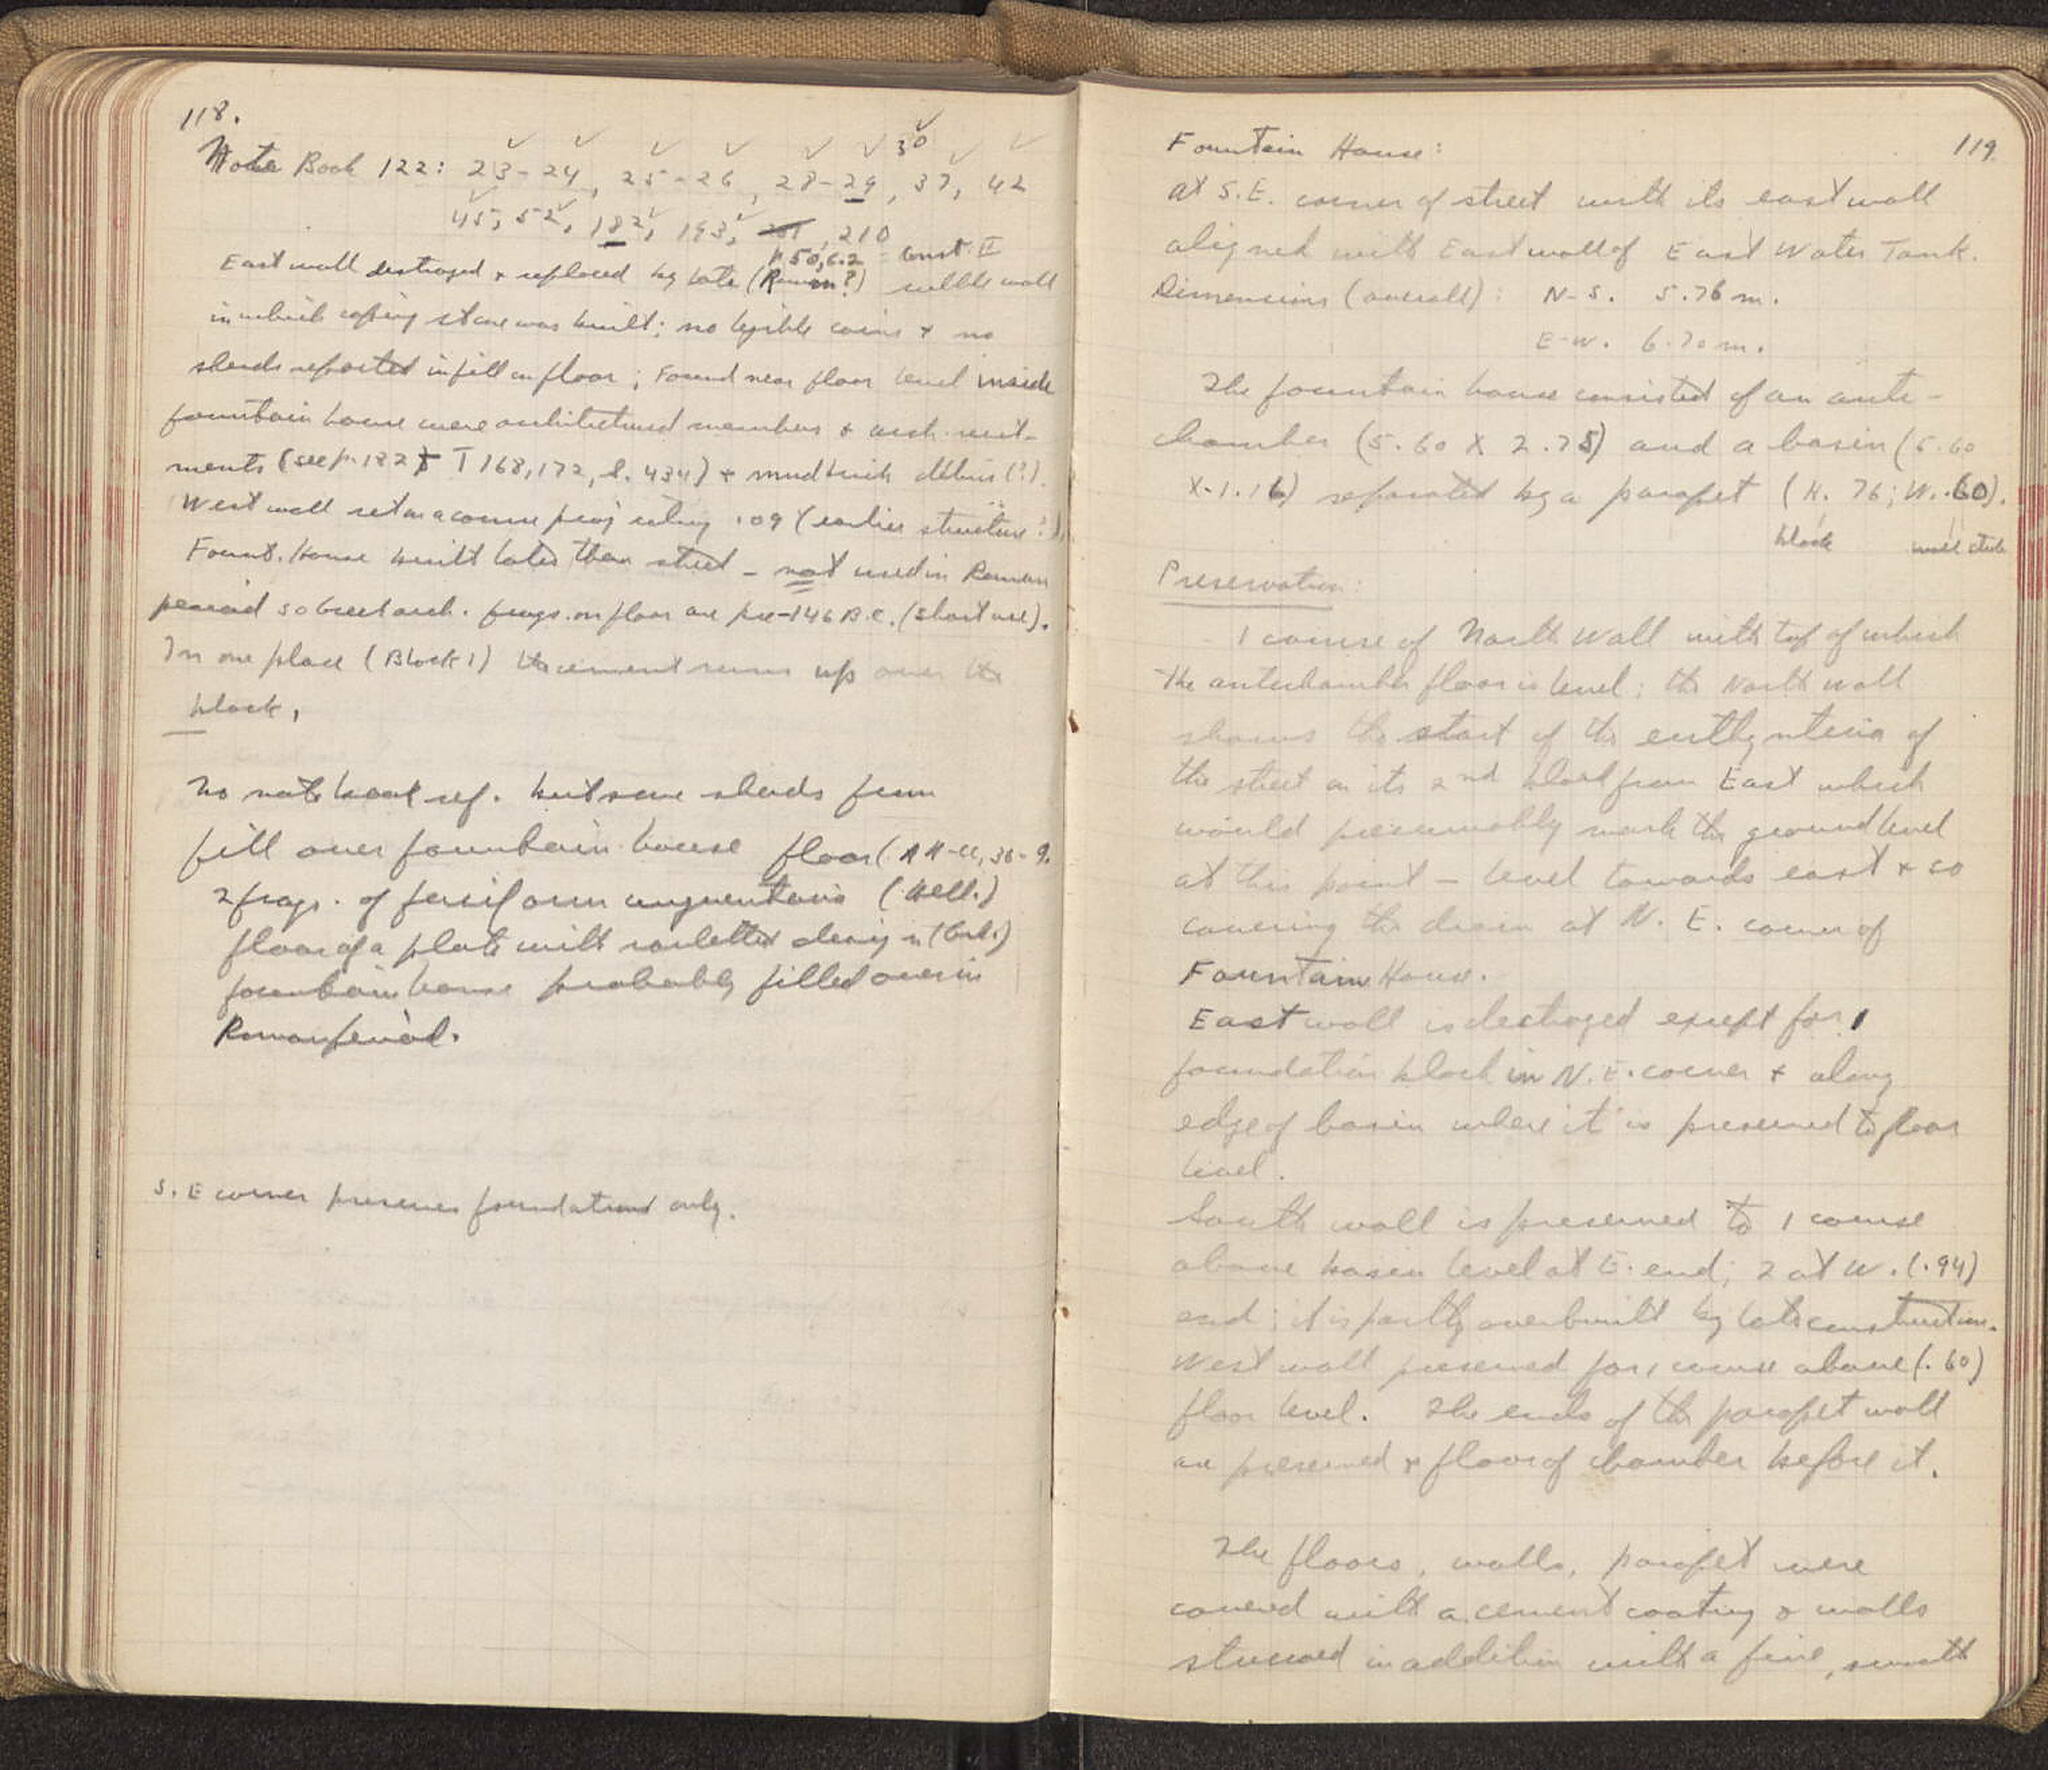 118.
Note Book 122: 23-24, 25-26, 28-29, 30, 37, 42
45, 52, 182, 193, 201, 210
p. 50, 6.2 = Const. II
East wall destroyed + replaced by late (Roman?) rubble wall
in which coping stone was built; no legible coins + no
sherds reported in fill on floor; Found near floor level inside
fountain house were architectural members + arch. revet-
ments (see p. 182 T 168, 172, S. 434) + mudbrick débris (?).
West wall set on a course projecting .09 (earlier structure?).
Fount. House built later than street - not used in Roman
period so Greek arch. frags. on floor are pre-146 B.C. (short use).
In one place (Block 1) the cement runs up over the
block.
No notebook ref. but some sherds from
fill over fountain house floor (AK-CC, 38-9.
2 frags. of fusiform unguentaria (Hell.)
floor of a plate with rouletted design (Hel.)
fountain house probably filled over in
Roman period.
S.E corner preserves foundations only.
119.
Fountain House:
At S.E. corner of street with its east wall
aligned with East wall of East Water Tank.
Dimensions (overall): N-S. 5.76 m.
E-W. 6.70 m.
The fountain house consisted of an ante-
chamber (5.60 X 2.75) and a basin (5.60
X 1.16) separated by a parapet (H. 76; W. .60).
block
Preservation:
1 course of North Wall with top of which
the antechamber floor is level; the North wall
shows the start of the euthynteria of
the street on its 2nd block from East which
would presumably mark the ground level
at this point - level towards east + so
covering the drain at N.E. corner of
Fountain House.
East wall is destroyed except for 1
foundation block in N.E. corner + along
edge of basin where it is preserved to floor
level.
South wall is preserved to 1 course
above basin level at E. end; 2 at W. (.94)
end; it is partly overbuilt by late construction.
West wall preserved for 1 course above (.60)
floor level. The ends of the parapet wall
are preserved + floor of chamber before it.
The floors, walls, parapet were
covered with a cement coating & walls
stuccoed in addition with a fine, smooth